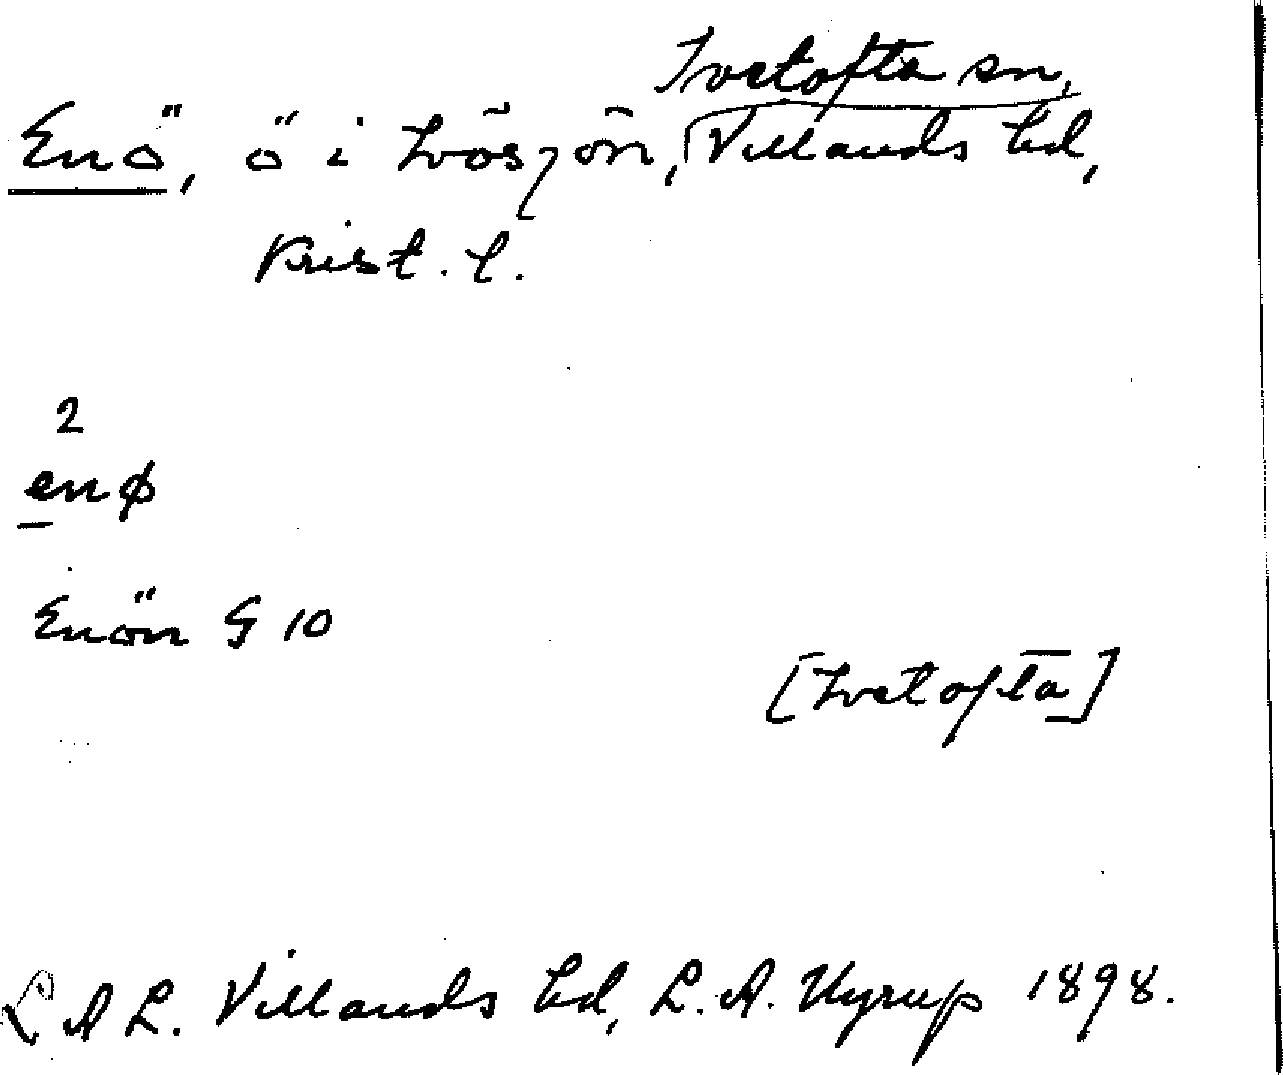 Ivetofta sn,
Enö, ö i Ivösjön, Villands hd,
Krist. l.
2
enø
Enön G 10
[Ivetofta]
L A L. Villands hd, L. A. Nyrup 1898.